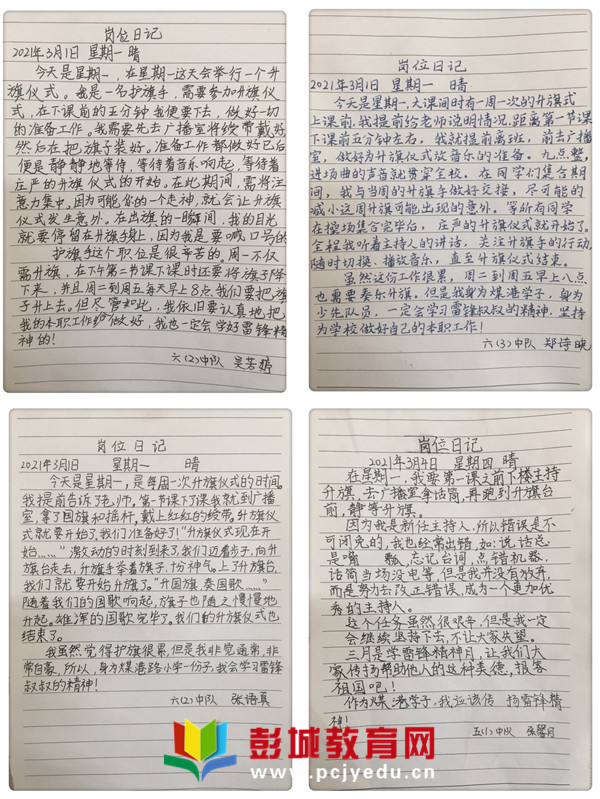 岗位日记
2021年3月1日 星期一 晴
今天是星期一，在星期一这天会举行一个升
旗仪式。我是一名护旗手，需要参加升旗仪
式，在下课前的五分钟我便要下去，做好一切
的准备工作。我需要先去广播室将绶带戴好
然后在把旗子装好。准备工作都做好已后
便是静静地等待，等待着音乐响起，等待着
庄严的升旗仪式的开始。在此期间，需将注
意力集中，因为可能你的一个走神，就会让升旗
仪式发生意外。在出旗的一瞬间，我的目光
就要停留在升旗手身上，因为我是要喊口号的
护旗手这个职位是很辛苦的，周一不仅
需升旗，在下午第二节课下课时还要将旗子降
下来，并且周二到周五每天早上8点我们要把旗
子升上去。但尽管如此，我依旧要认真地把
我的本职工作做好，我也一定会学好雷锋精
神的！
六(2)中队 吴芳婷
岗位日记
2021年3月1日 星期一 晴
今天是星期一，大课间时有一周一次的升旗式
上课前，我提前给老师说明情况，距离第一节课
下课前五分钟左右，我就提前离班，前去广播
室，做好为升旗仪式放音乐的准备。九点整，
进场曲的声音就贯穿全校。在同学们集合期
间，我与当周的升旗手做好交接，尽可能的
减小这周升旗可能出现的意外。等所有同学
在操场集合完毕后，庄严的升旗仪式就开始了。
全程我听着主持人的讲话，关注升旗手的行动，
随时切换、播放音乐，直至升旗仪式结束。
虽然这份工作很累，周二到周五早上八点
也需要奏乐升旗。但是我身为煤港学子，身为
少先队员，一定会学习雷锋叔叔的精神，坚持
为学校做好自己的本职工作！
六(3)中队 郑诗晓
岗位日记
2021年3月1日 星期一 晴
今天是星期一，是每周一次升旗仪式的时间。
我提前告诉了老师，第一节课下了课我就到广播
室，拿了国旗和摇杆，戴上红红的绶带。升旗仪
式就要开始了，我们准备好了！“升旗仪式现在开
始……”激动的时刻到来了，我们迈着步子，向升
旗台走去，升旗手举着旗子，十分神气。上了升旗台，
我们就要开始升旗了。“升国旗 奏国歌……”
随着我们的国歌响起，旗子也随之慢慢地
升起。雄浑的国歌完毕了。我们的升旗仪式也
结束了。
我虽然觉得护旗很累，但是我非觉通常，非
常自豪，所以，身为煤港路小学一份子，我会学习雷锋
叔叔的精神！
六(2)中队 张语真
岗位日记
2021年3月4日 星期四 晴
在星期一，我要第一课之前下楼主持
升旗，去广播室拿话筒，再跑到升旗台
前，静等升旗。
因为我是新任主持人，所以错误是不
可避免的，我也经常出错，如：说话总
是嘴瓢，忘记台词，点错机器，
话筒当场没电等，但是我并没有放弃，
而是努力去改正错误，成为一个更加优
秀的主持人。
这个任务虽然很艰辛，但是我一定
会继续坚持下去，不让大家失望。
三月是学雷锋精神月，让我们大
家传扬帮助他人的这种美德，报答
祖国吧！
作为煤港学子，我应该传扬雷锋精
神！
五(1)中队 张馨月
彭城教育网
www.pcjyedu.cn